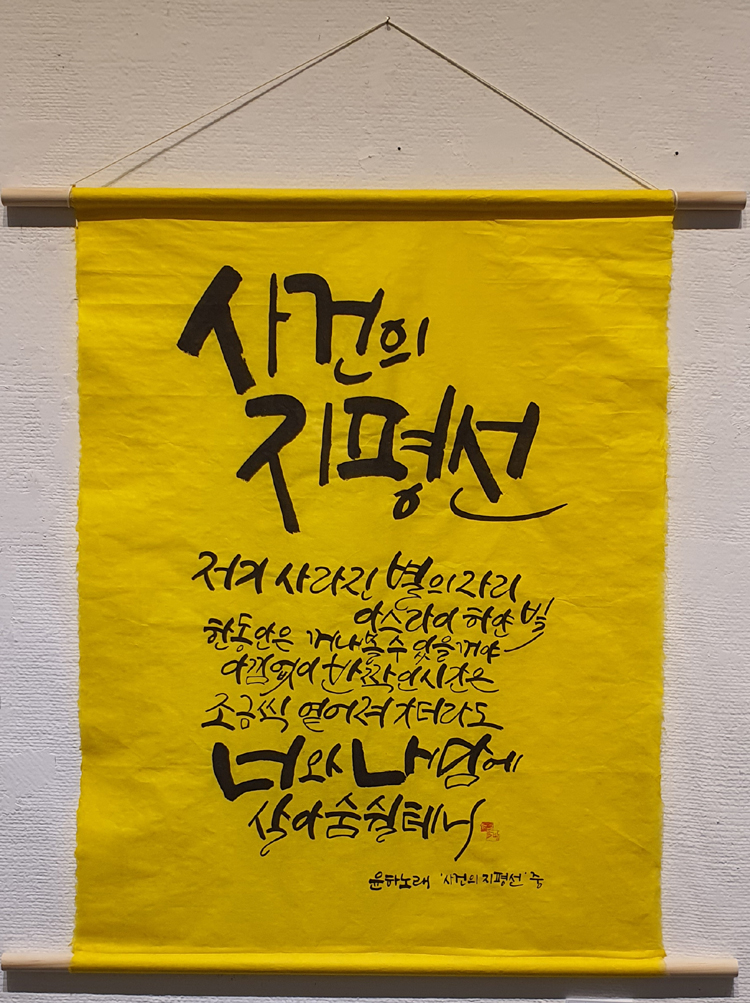 사건의
지평선
저기 사라진 별의 자리
아스라이 하얀 빛
한동안은 꺼내 볼 수 있을 거야
아낌없이 반짝인 시간은
조금씩 옅어져 가더라도
너와 내 맘에
살아 숨쉴 테니
윤하노래 '사건의 지평선' 중